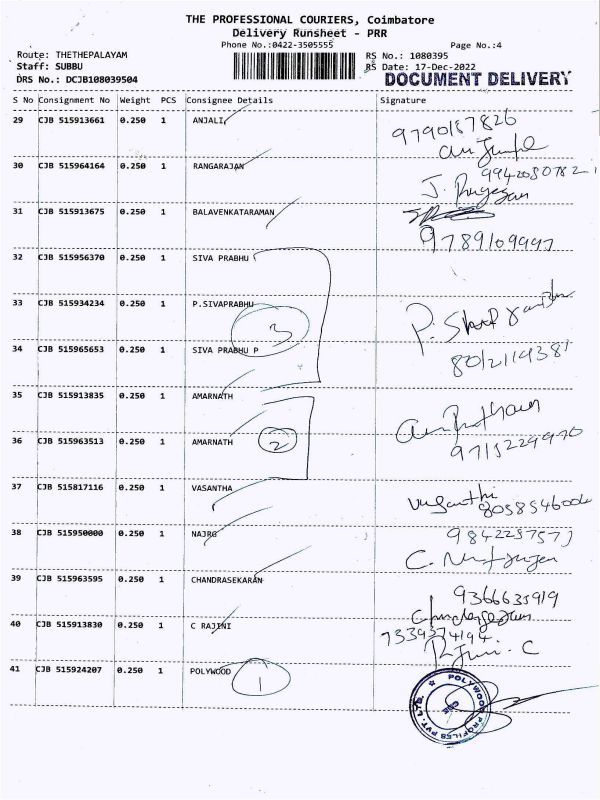 THE PROFESSIONAL COURIERS, Coimbatore
Delivery Runsheet - PRR
Phone No.:0422-3505555 Page No.:4
Route: THETHEPALAYAM RS No.: 1080395
Staff: SUBBU RS Date: 17-Dec-2022
DRS No.: DCJB108039504 DOCUMENT DELIVERY
S No Consignment No Weight PCS Consignee Details Signature
29 CJB 515913661 0.250 1 ANJALI 9790187826
30 CJB 515964164 0.250 1 RANGARAJAN 9942080782
31 CJB 515913675 0.250 1 BALAVENKATARAMAN
9789109997
32 CJB 515956370 0.250 1 SIVA PRABHU
33 CJB 515934234 0.250 1 P.SIVAPRABHU
3
34 CJB 515965653 0.250 1 SIVA PRABHU P 8012119381
35 CJB 515913835 0.250 1 AMARNATH
36 CJB 515963513 0.250 1 AMARNATH 2 9715229970
37 CJB 515817116 0.250 1 VASANTHA
38 CJB 515950000 0.250 1 NAJRG
39 CJB 515963595 0.250 1 CHANDRASEKARAN
9366635919
40 CJB 515913830 0.250 1 C RAJINI
7339374194
41 CJB 515924207 0.250 1 POLYWOOD 1
POLYWOOD PROFILES PVT. LTD.